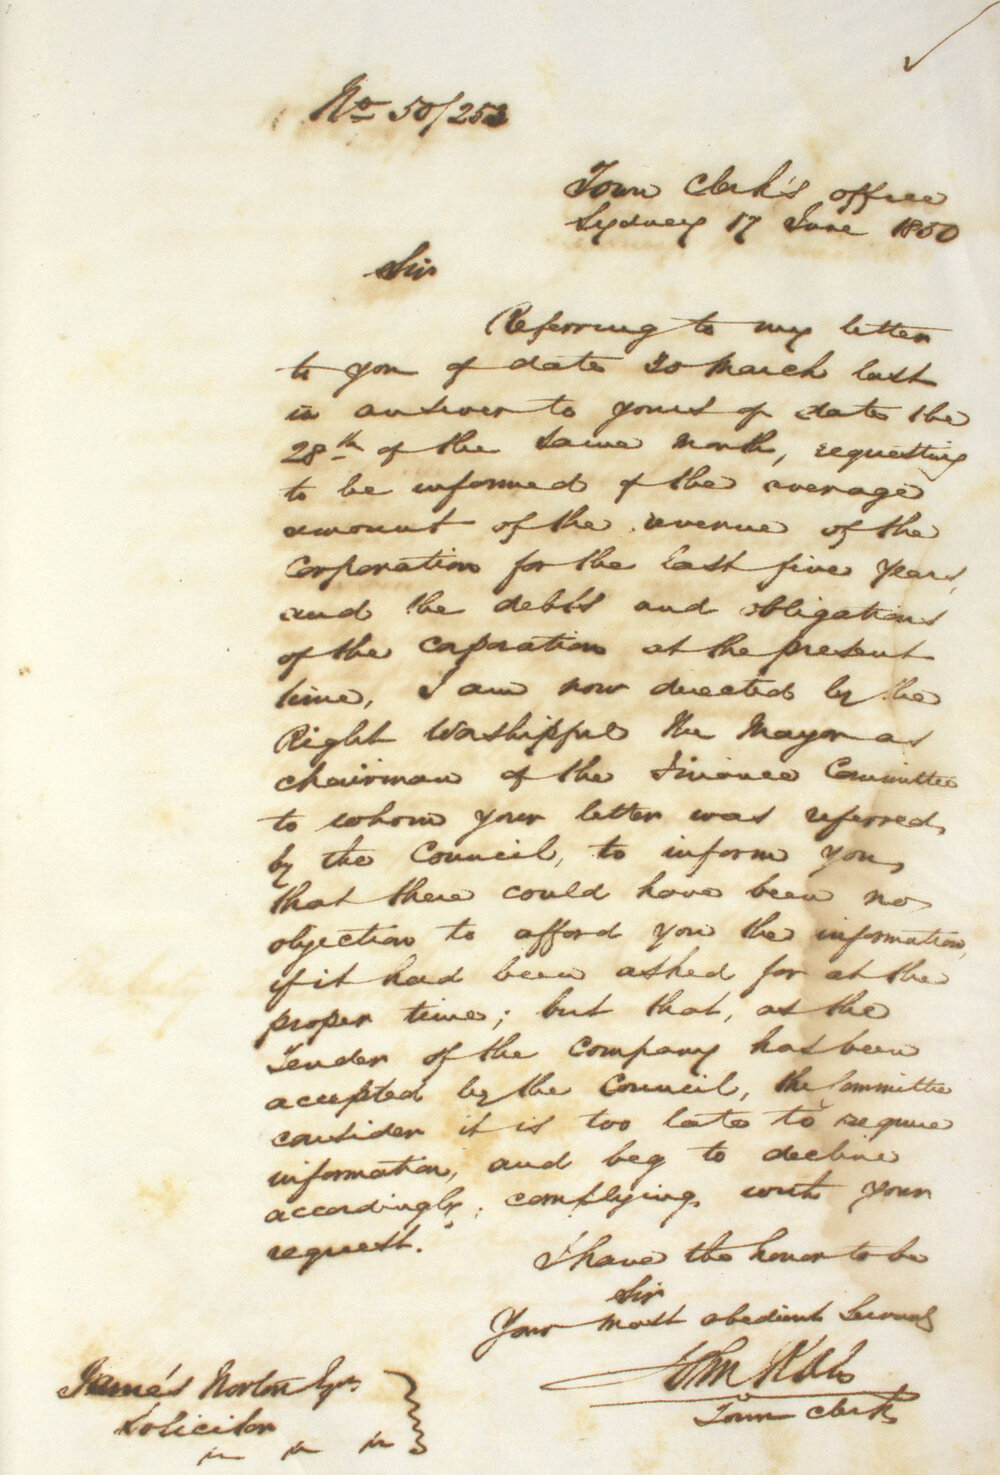 No 50/252
Town Clerk's office
Sydney 17 June 1850
Sir
Referring to my letter
to you of date 30 March last
in answer to yours of date the
28th of the same Month, requesting
to be informed of the average
amount of the revenue of the
Corporation for the last five years,
and the debts and obligations
of the Corporation at the present
time, I am now directed by the
Right Worshipful the Mayor as
Chairman of the Finance Committee
to whom your letter was referred,
by the Council, to inform you,
that there could have been no
objection to afford you the information,
if it had been asked for at the
proper time; but that, as the
Tender of the Company has been
accepted by the Council, the Committee
consider it is too late to require
information, and beg to decline
accordingly, complying with your
request.
I have the honor to be
Sir
Your most obedient Servant
Town Clerk
James Norton Esqr.
Solicitor